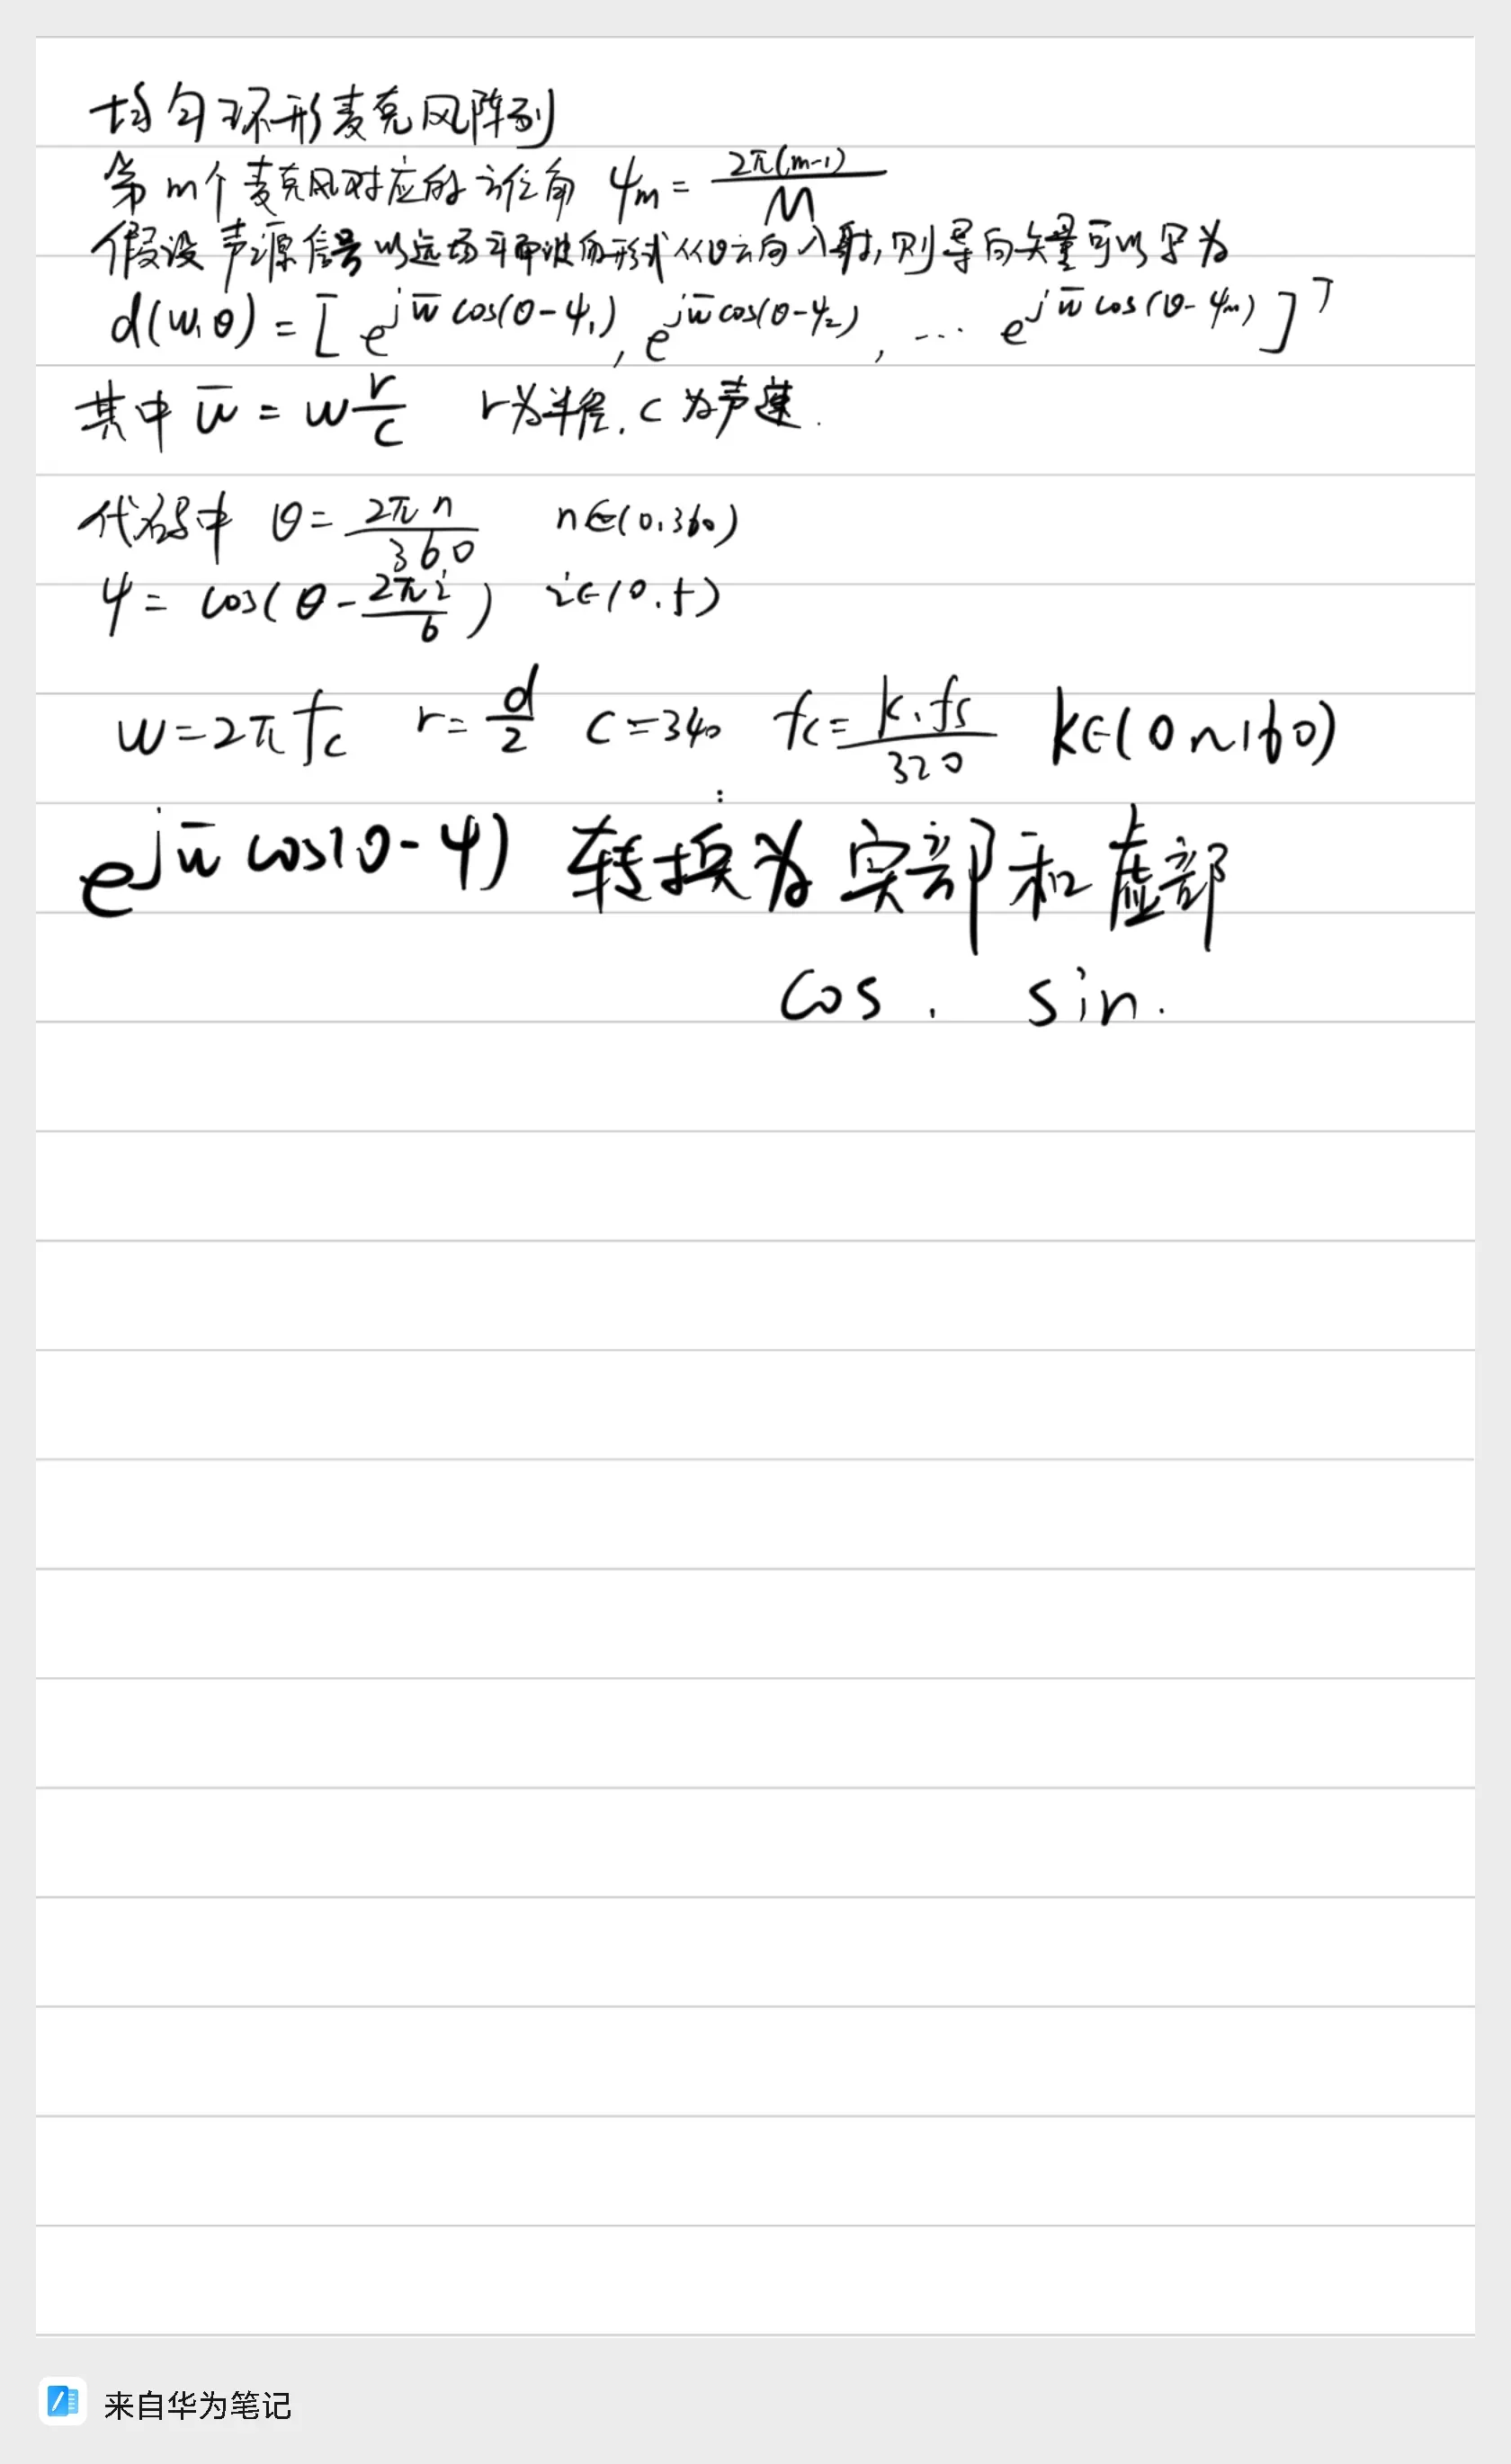 均匀环形麦克风阵列
第m个麦克风对应的方位角 ψm = 2π(m-1)/M
假设声源信号以远场平面波的形式从θ方向入射,则导向矢量可以写为
d(w,θ) = [e^{jw̅cos(θ-ψ1)}, e^{jw̅cos(θ-ψ2)}, ... e^{jw̅cos(θ-ψm)}]^T
其中 w̅ = w r/c r为半径. c为声速.
代码中 θ = 2πn/360 n∈(0.360)
ψ = cos(θ - 2πi/6) i∈(0.5)
w = 2πfc r = d/2 c = 340 fc = k·fs/320 k∈(0~160)
e^{jw̅cos(θ-ψ)} 转换为实部和虚部
cos. sin.
来自华为笔记